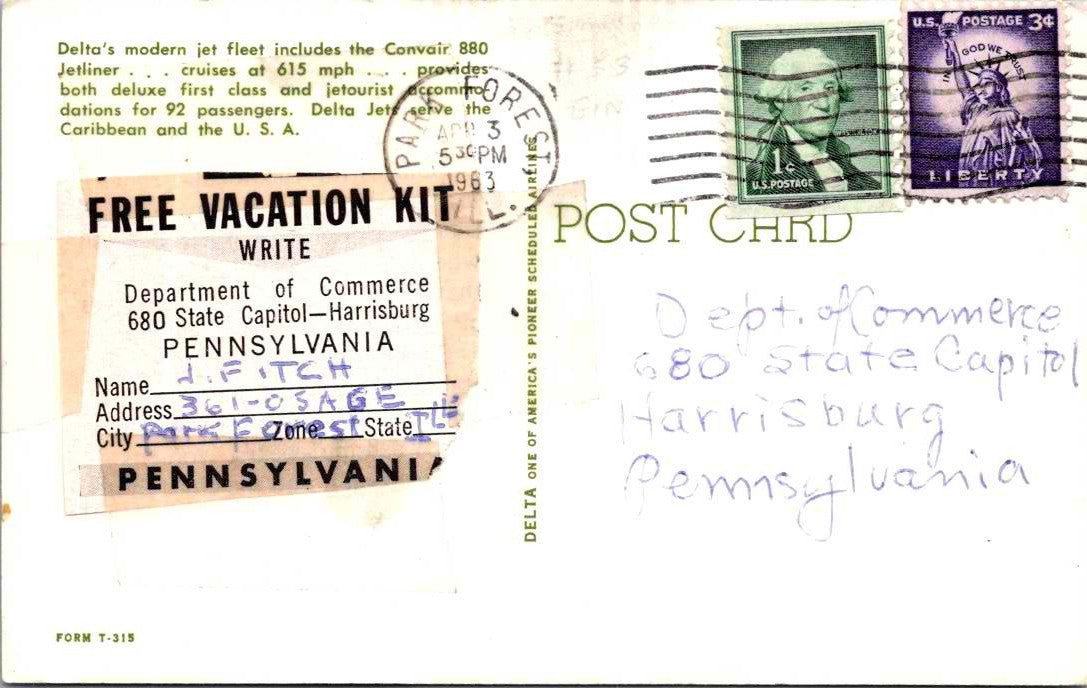 Delta's modern jet fleet includes the Convair 880
Jetliner . . . cruises at 615 mph . . . provides
both deluxe first class and jetourist accommo-
dations for 92 passengers. Delta Jets serve the
Caribbean and the U. S. A.
PARK FOREST
APR 3
5 30 PM
1963
ILL.
U.S. POSTAGE 3¢
IN GOD WE TRUST
LIBERTY
WASHINGTON
1¢
U.S. POSTAGE
FREE VACATION KIT
WRITE
Department of Commerce
680 State Capitol—Harrisburg
PENNSYLVANIA
Name J. FITCH
Address 361-OSAGE
City Park Forest Zone State ILL
PENNSYLVANIA
FORM T-315
DELTA ONE OF AMERICA'S PIONEER SCHEDULED AIRLINES
POST CARD
Dept. of Commerce
680 State Capitol
Harrisburg
Pennsylvania